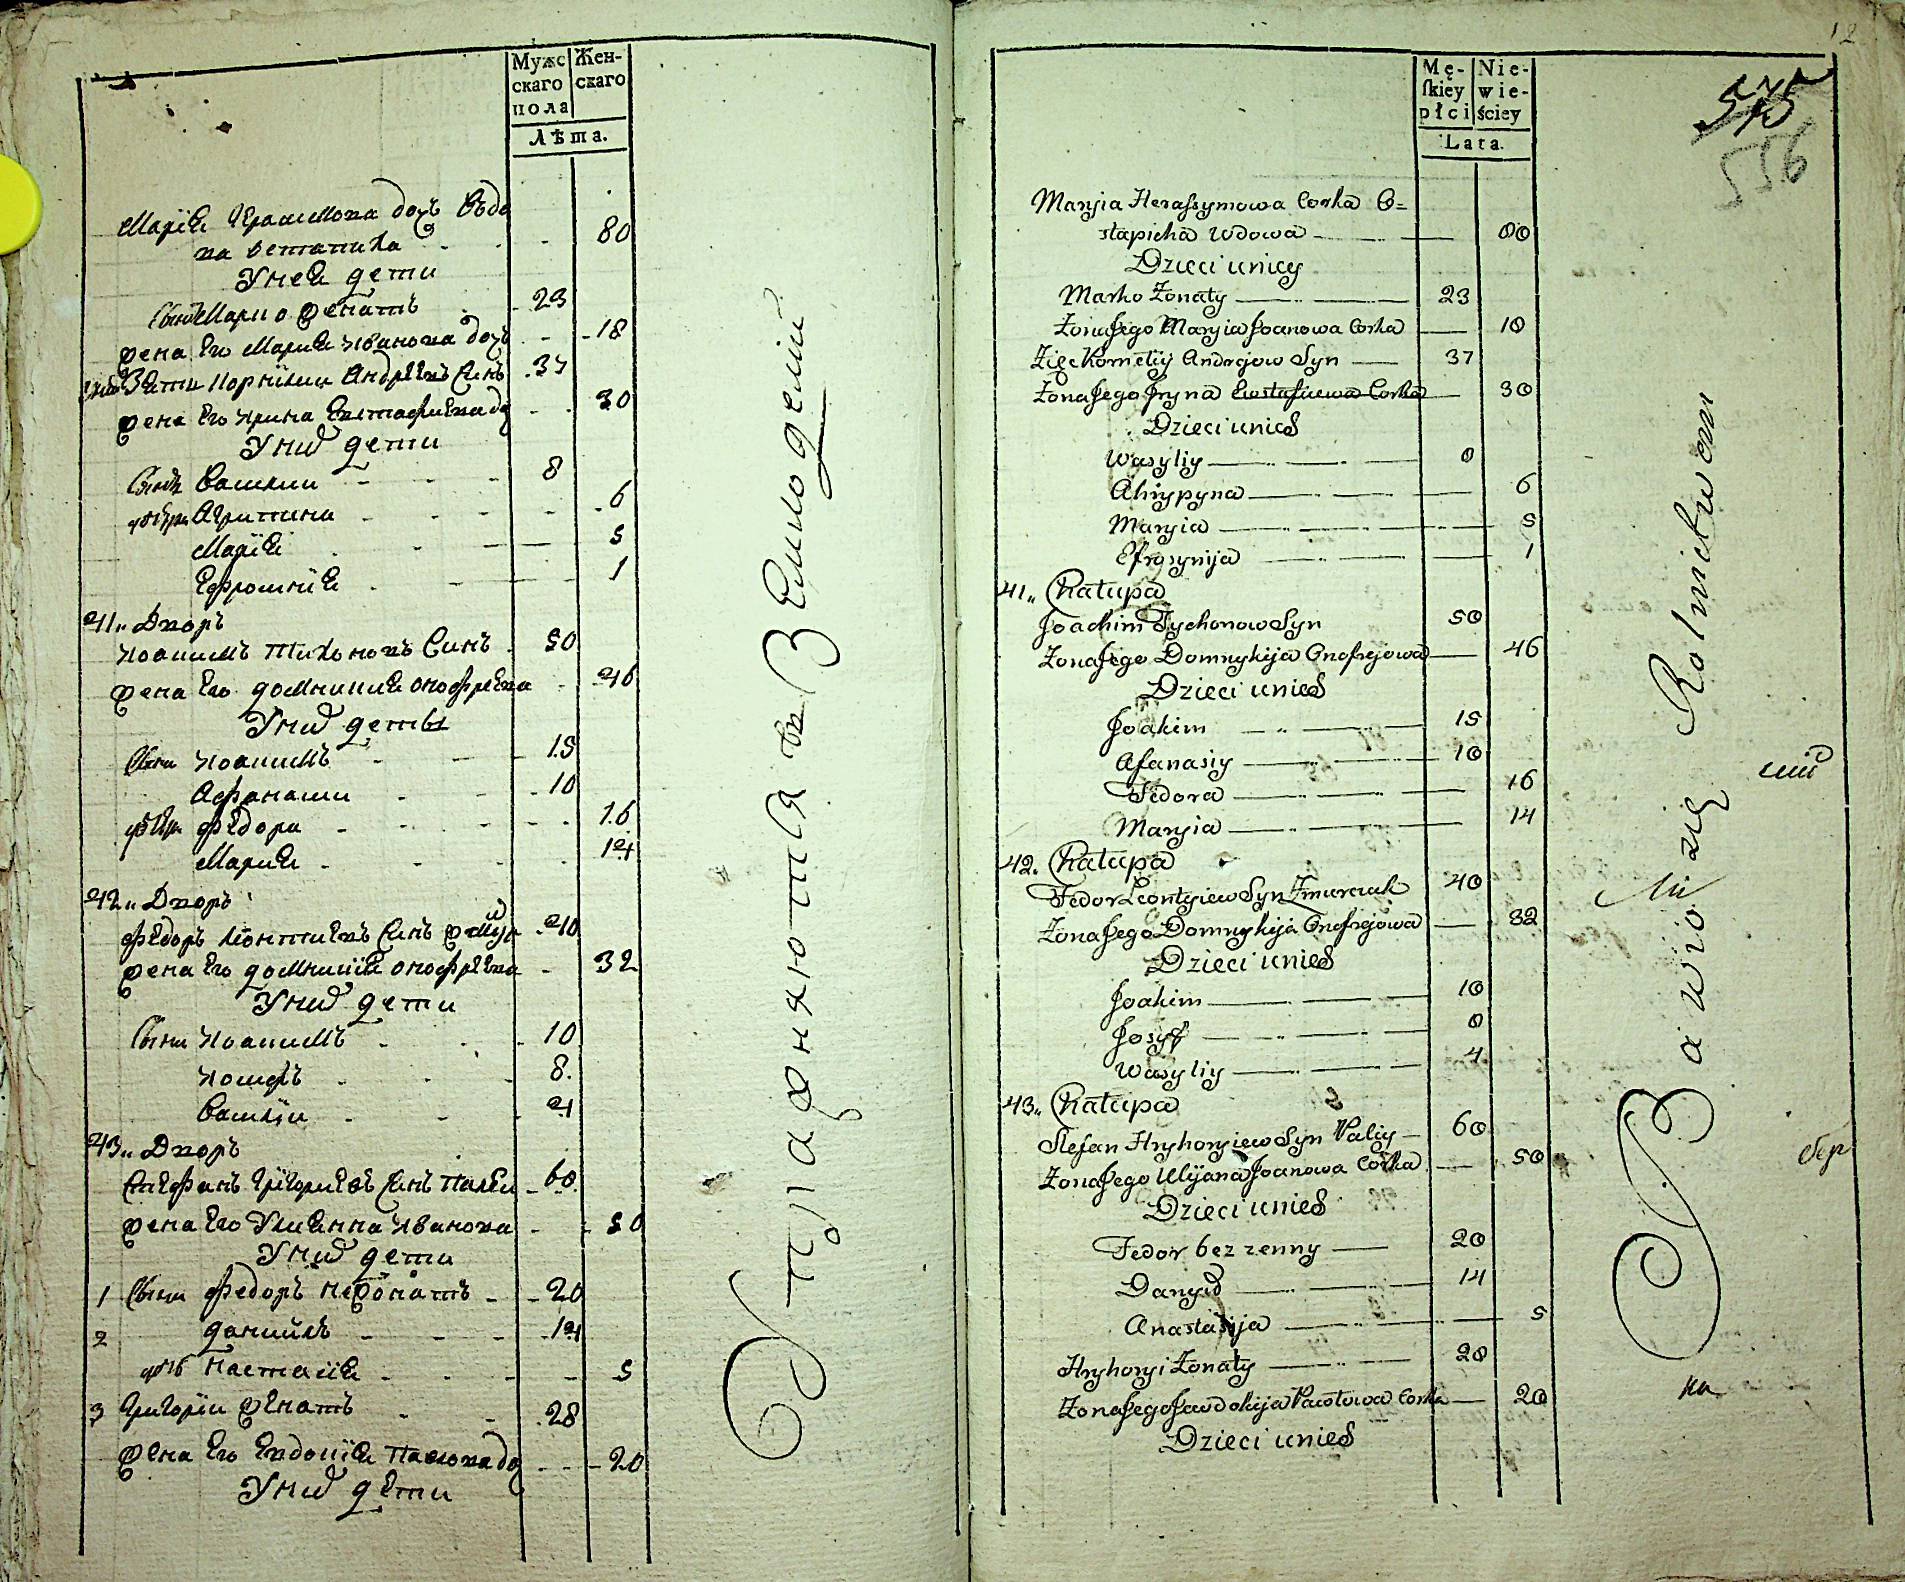 Мужс
скаго
пола
Жен-
скаго
Лѣта.
Марія Герасимова дочъ вдо
ва остапиха - - 80
У нея дети
Сынъ Марко женатъ - 23
жена Его Мария Иванова дочъ - - 18
Зять Корнилии Андреевъ Синъ - 37
жена Его Ирина Евстафиева до - - 30
У них дети
Синъ Василии - - - 8
дочери Агрипина - - - - 6
Мария - - - 5
Ефросиния - - - 1
41„ Дворъ
Иоакимъ Тихоновъ Синъ - 50
жена Его домникия онофреева - 46
У них деты
Сыни Иоакимъ - - - 15
Афанасии - - - 10
дочери Федора - - - - - 16
Мария - - - - 14
42„ Дворъ
Федоръ Леонтиевъ Синъ - 40
жена Его домникия онофреева - 32
У них дети
Сыни Иоакимъ - - - 10
Иосифъ - - - 8.
Василии - - - 4
43„ Дворъ
Стефанъ Григориевъ Синъ Палии - 60
жена Его Улиянна Иванова - - 50
У них дети
1 Сыни Федоръ неженатъ - - 20
2 данийлъ - - - - 14
дочъ Настасия - - - - 5
3 Григории женатъ - - - 28
жена Его Евдокия Павлова до - - - 20
У них дети
Упражняются въ Земледелии
12
575
556
Mę-
ſkiey
płci
Nie-
wie-
ściey
Lata.
Maryia Heraſsymowa Corka O=
stapicha Wdowa — 80
Dzieci u niey
Marko Żonaty — 23
Żona Jego Maryia Joanowa Corka — 18
Zięc Korneliy Andrejow Syn — 37
Żona Jego Jryna Ewstafiewa Corka — 30
Dzieci u nich
Wasyliy — 8
Ahrypyna — 6
Maryia — 5
Efrosynija — 1
41„ Chałupa
Joachim Tychonow Syn 50
Żona Jego Domnykija Onofrejowa — 46
Dzieci u nich
Joakim — 15
Afanasiy — 10
Fedora — 16
Maryia — 14
42. Chałupa
Fedor Leontyiew Syn Żmurciak 40
Żona Jego Domnykija Onofrejowa — 32
Dzieci u nich
Joakim — 10
Josyf — 8
Wasyliy — 4
43„ Chałupa
Stefan Hryhoryiew Syn Paliy — 60
Żona Jego Ulijana Joanowa Corka — 50
Dzieci u nich
Fedor bez żenny — 20
Danyił — 14
Anastasija — 5
Hryhoryi Żonaty — 28
Żona Jego Jawdokija Pawłowa Corka — 20
Dzieci u nich
Bawią się Rolnictwem